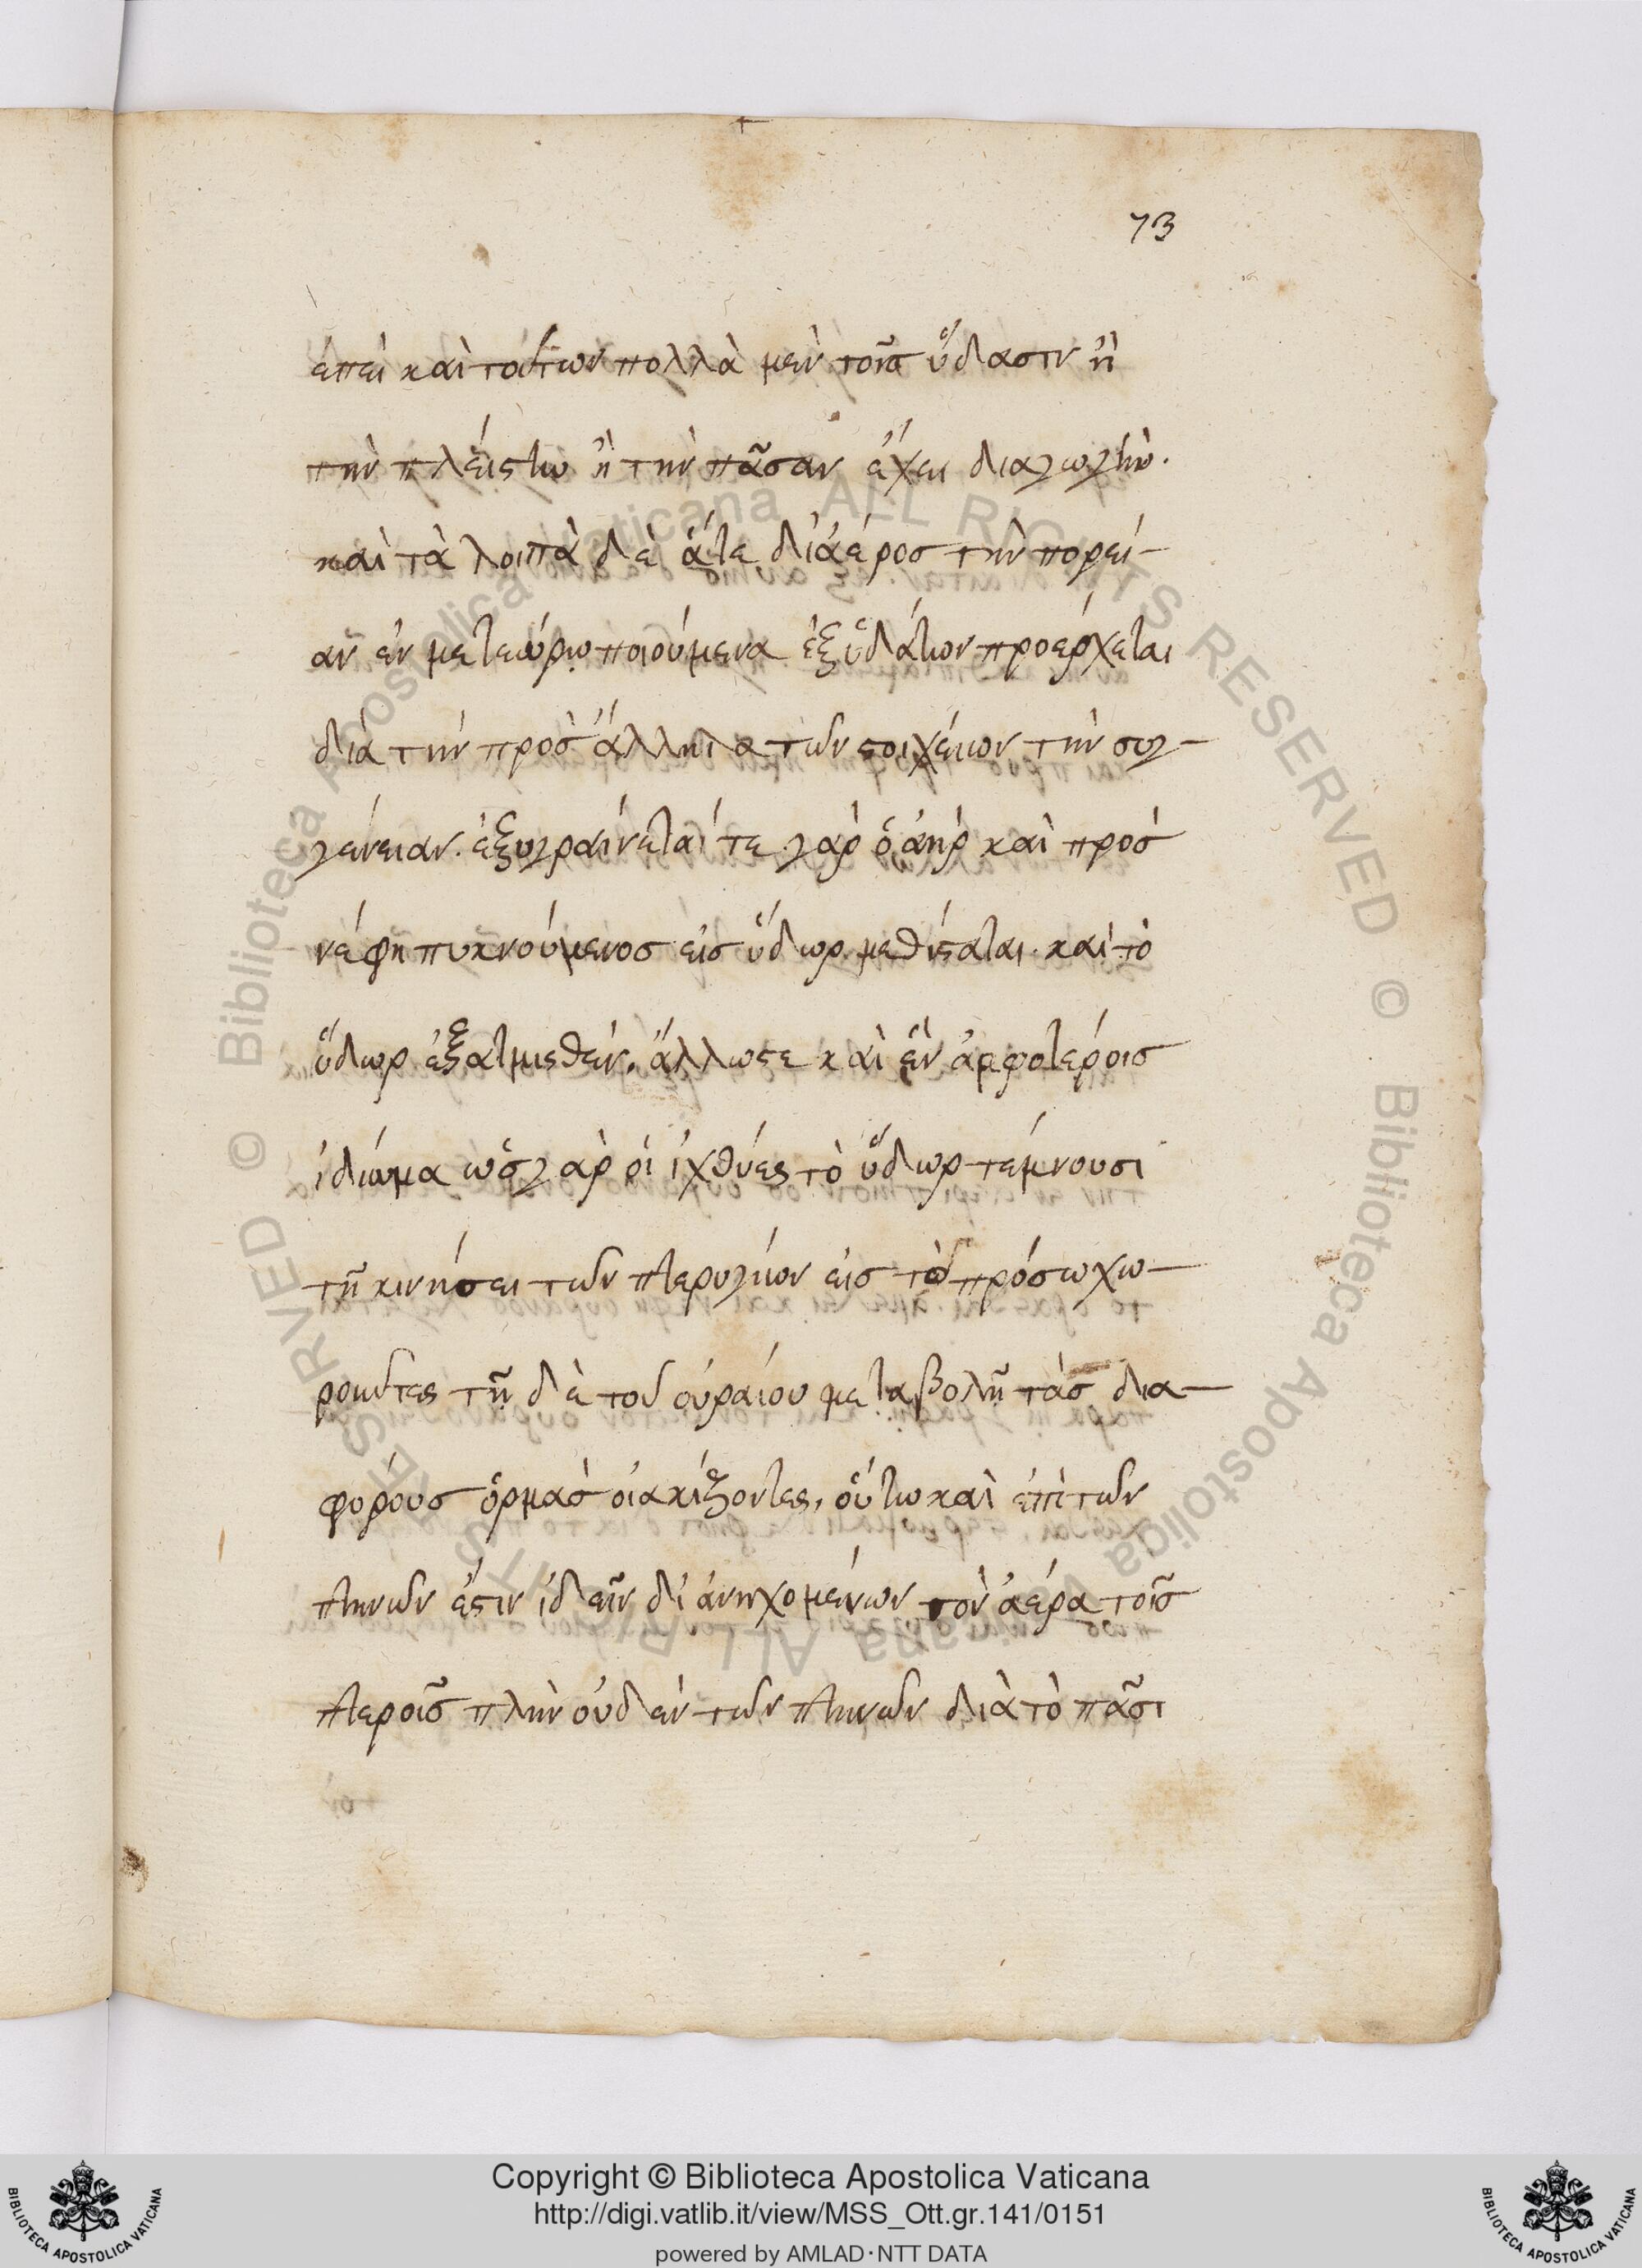 73
ἐπεὶ καὶ τούτων πολλὰ μὲν τοῖς ὕδασιν ἢ
τὴν πλείστω ἢ τὴν πᾶσαν ἔχει διαγωγὴν.
καὶ τὰ λοιπὰ δὲ ἅτε δι' ἀέρος τὴν πορεί-
αν ἐν μετεώρω ποιούμενα ἐξ ὑδάτων προέρχεται
διὰ τὴν πρὸς ἄλληλα τῶν στοιχείων τὴν συγ-
γένειαν. ἐξυγραίνεταί τε γὰρ ὁ ἀὴρ καὶ πρὸς
νέφη πυκνούμενος εἰς ὕδωρ μεθίσταται. καὶ τὸ
ὕδωρ ἐξατμισθὲν, ἄλλωστε καὶ ἓν ἀμφοτέροις
ἰδίωμα ὡς γὰρ οἱ ἰχθύες τὸ ὕδωρ τέμνουσι
τῇ κινήσει τῶν πτερυγίων εἰς τὸ πρόσω χω-
ροῦντες τῇ δὲ τοῦ οὐραίου μεταβολῇ τὰς δια-
φόρους ὁρμὰς οἰακίζοντες, οὕτω καὶ ἐπὶ τῶν
πτηνῶν ἔστιν ἰδεῖν δι' ἀνηχομένων τὸν ἀέρα τοῖς
πτεροῖς πλὴν οὐδὲν τῶν πτηνῶν διὰ τὸ πᾶσι
Copyright © Biblioteca Apostolica Vaticana
http://digi.vatlib.it/view/MSS_Ott.gr.141/0151
powered by AMLAD·NTT DATA
BIBLIOTECA APOSTOLICA VATICANA
BIBLIOTECA APOSTOLICA VATICANA
© Biblioteca Apostolica Vaticana ALL RIGHTS RESERVED
© Biblioteca Apostolica Vaticana ALL RIGHTS RESERVED